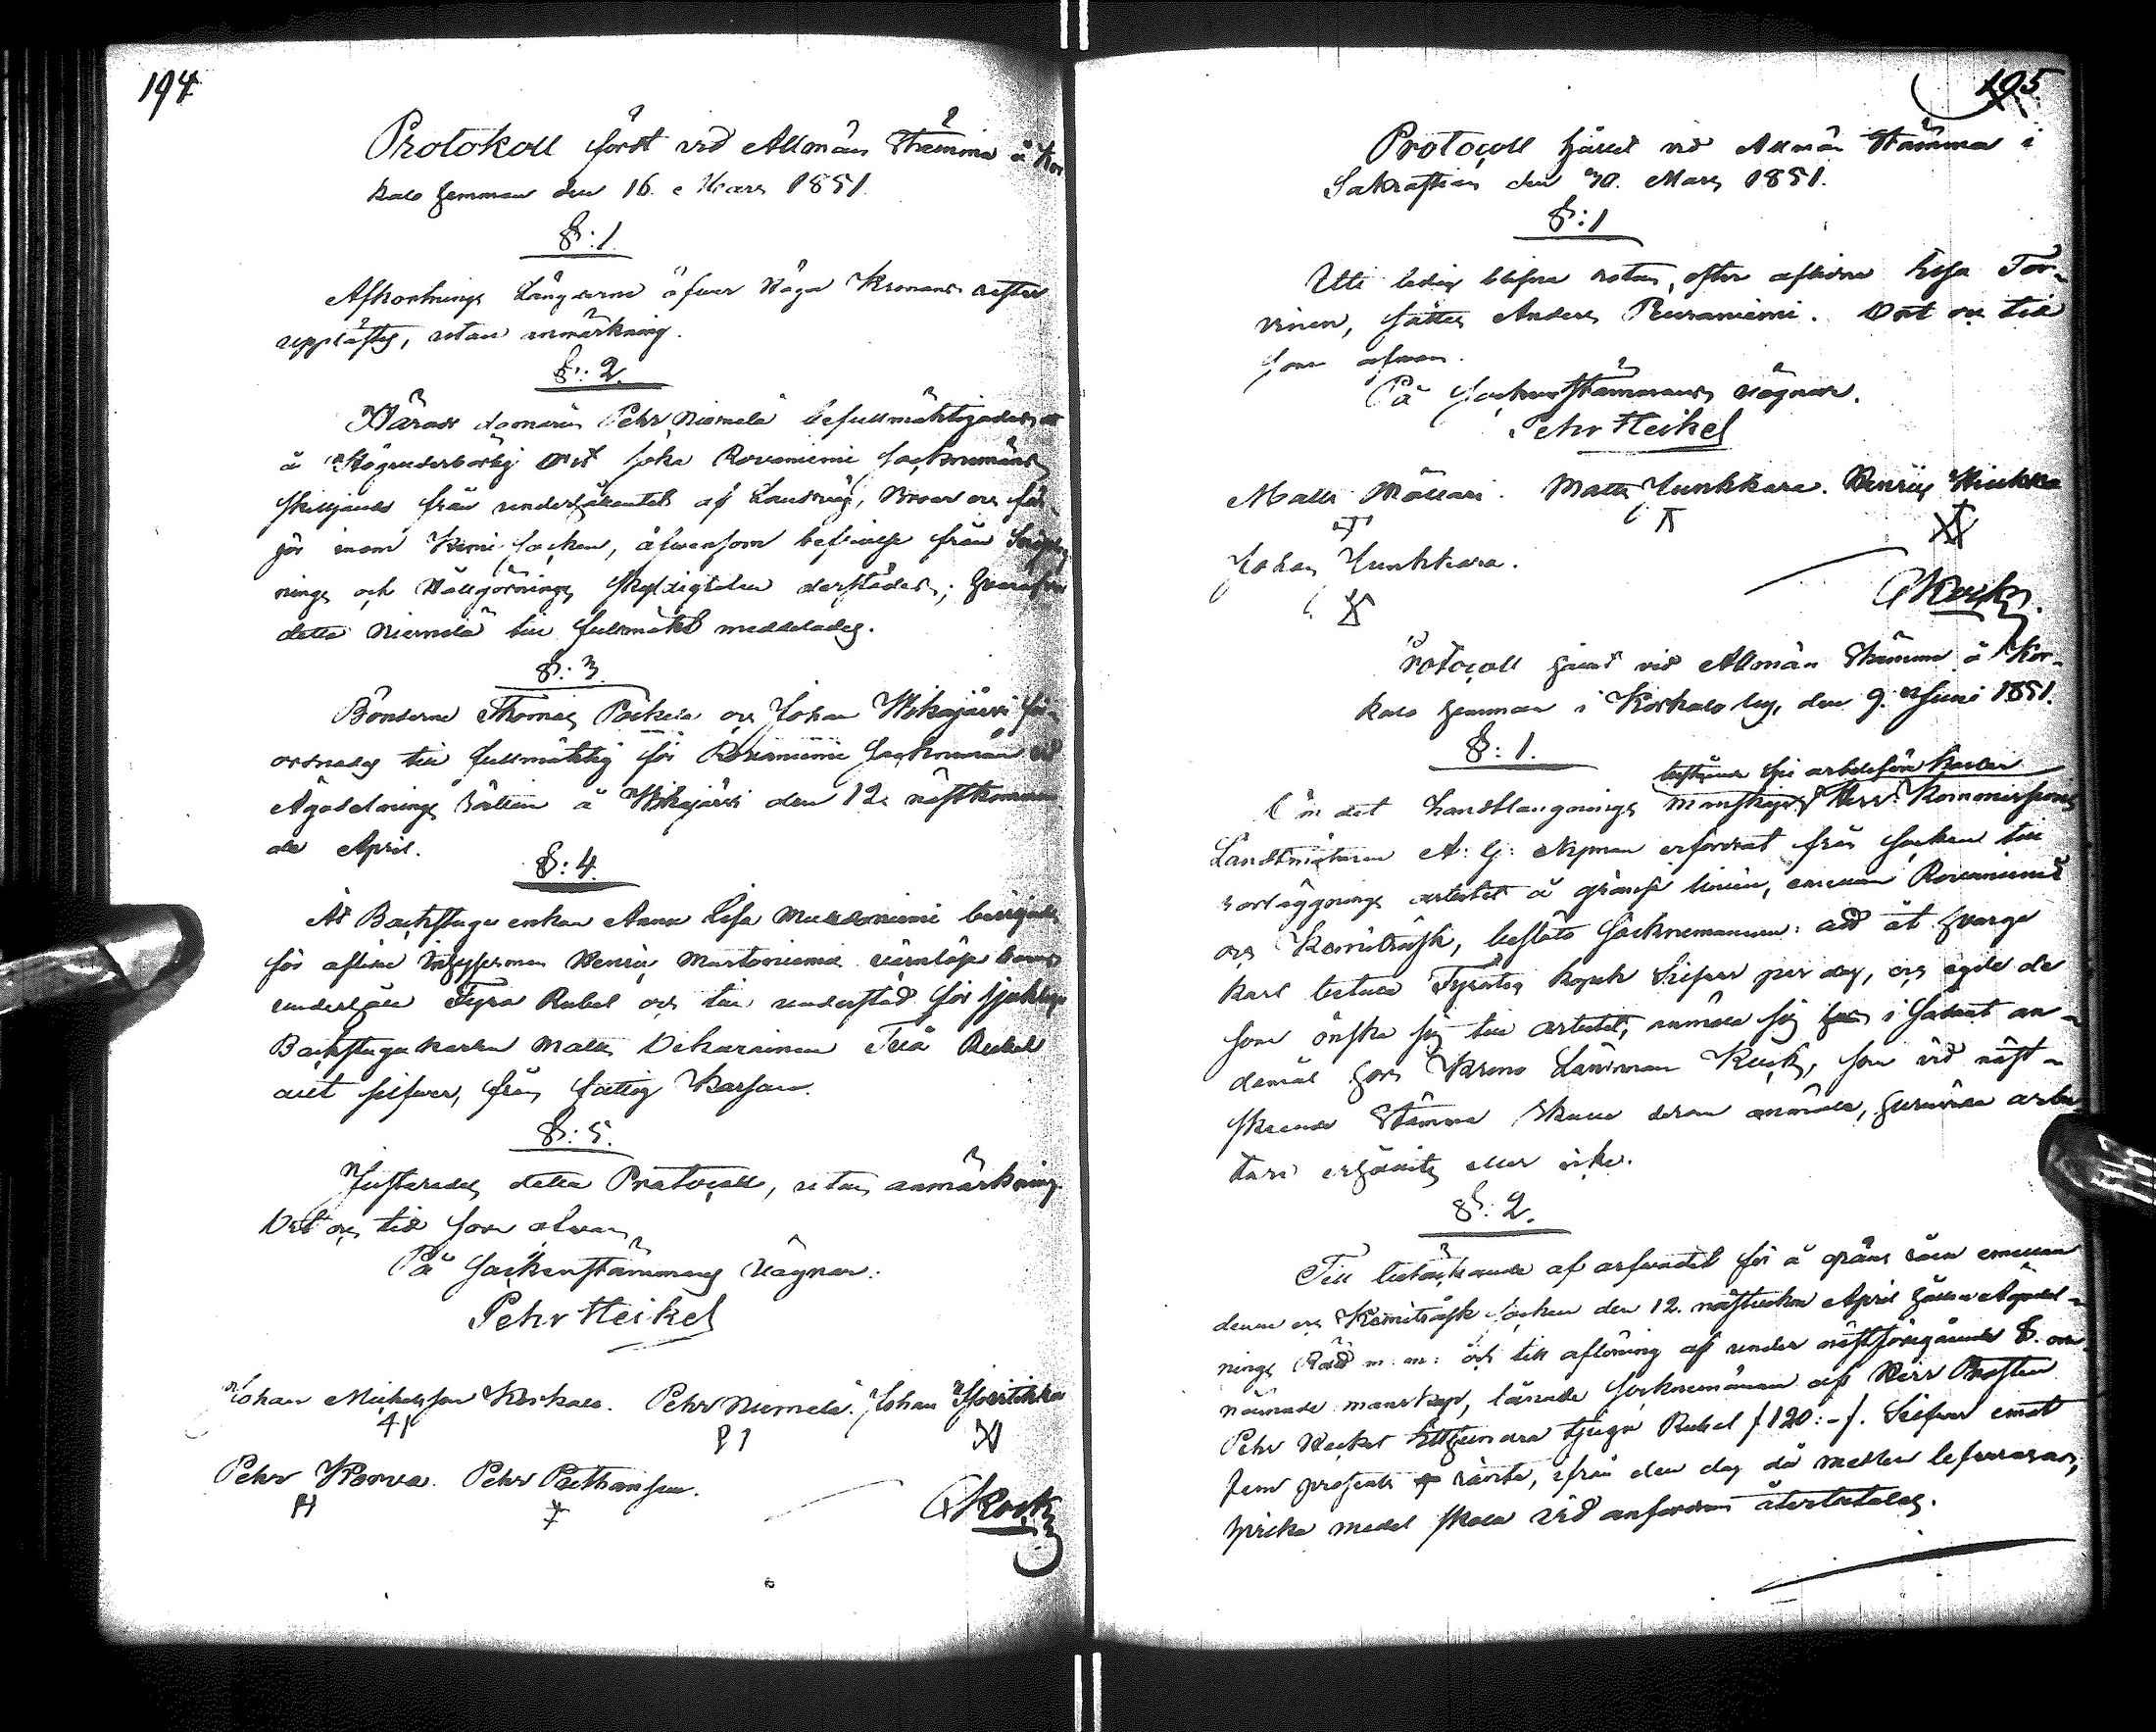 194
Protokoll fördt vid Allmän Stämma å Kor
kalo hemman den 16. Mars 1851.
§: 1.
Afkortnings Längderne öfwer Höga Kronans rester
upplästes, utan anmärkning.
§: 2.
Härads domaren Pehr Niemelä befullmäktigades att
å Högvederbörlig Ort söka Rovaniemi Socknemäns
skiljande från underhållandet af Landsväg, Broar och fär-
jor inom Kemi Socken, äfvensom befrielse från
nings och Hållgörnings skyldigheten derstädes; hvarefter
detta Niemelä till fullmakt meddelades.
§: 3.
Bönderne Thomas Pockela och Johan Wikajärvi för-
ordnades till fullmäktig för Rovaniemi Socknemän vid
Ägodelnings Rätten å Wikajärvi den 12. nästkomman
de April.
§: 4.
Åt Backstugu enkan Anna Lisa beviljades
för aflidne Inhysesman Henric Martinniemis värnlösa barns
underhåll Fyra Rubel och till understöd för sjuklige
Backstugukarlen Matts Vikarainen Två Rubel
allt silfver, från fattig Kassan.
§: 5.
Justerades detta Protocoll, utan anmärkning.
Ort och tid som ofvan
På Sockenstämmans Vägnar:
Pehr Heikel
Johan Michelsson Korkalo. Pehr Niemelä. Johan
Pehr Korva. Pehr
195
Protocoll hållet vid Allmän Stämma i
Sakrastian den 30. Mars 1851.
§: 1
Uti ledig blifne rotan, efter aflidne Essa Tor-
vinen, sattes Anders Peuraniemi. Ort och tid
som ofvan.
På Sockenstämmans vägnar.
Pehr Heikel
Matts Mällari. Matts Junkkara. Henric
Johan Junkkara.
Protocoll hållet vid Allmän Stämma å Kor-
kalo hemman i Korkalo by, den 9. Juni 1851.
§: 1.
arbetsföre karlar
det Handtlangnings manskap Herr Kommissions
Landtmätaren A: G: Nyman erfordrat från Socken till
rörläggnings arbetet å gränse linien, emellan Rovaniemi
och Kemiträsk, beslöto Socknemännen: att åt hvarje
karl betala Fyratio kopek Silfver per dag, och egde de
som önska sig till arbetet, anmäla sig i sådant än-
damål hos Krono Länsman Keckj, som vid näst-
skeende Stämma skulle derom anmäla, huruvida arbe
tare erhållits eller icke.
§: 2.
Till betäckande af arfvodet för å gräns råen emellan
denne och Kemiträsk Socken den 12. nästvekne April hållen Ägodel-
nings Rätt m: m: och till aflöning af under nästföregående §. om
nämnde manskap, lånade Socknemännen af Herr Prosten
Pehr Heikel Etthundra tjugu Rubel /120:-/. Silfver emot
fem procents ränta, ifrån den dag då medlen lefvereras,
hvilka medel skola vid anfordran återbetalas.